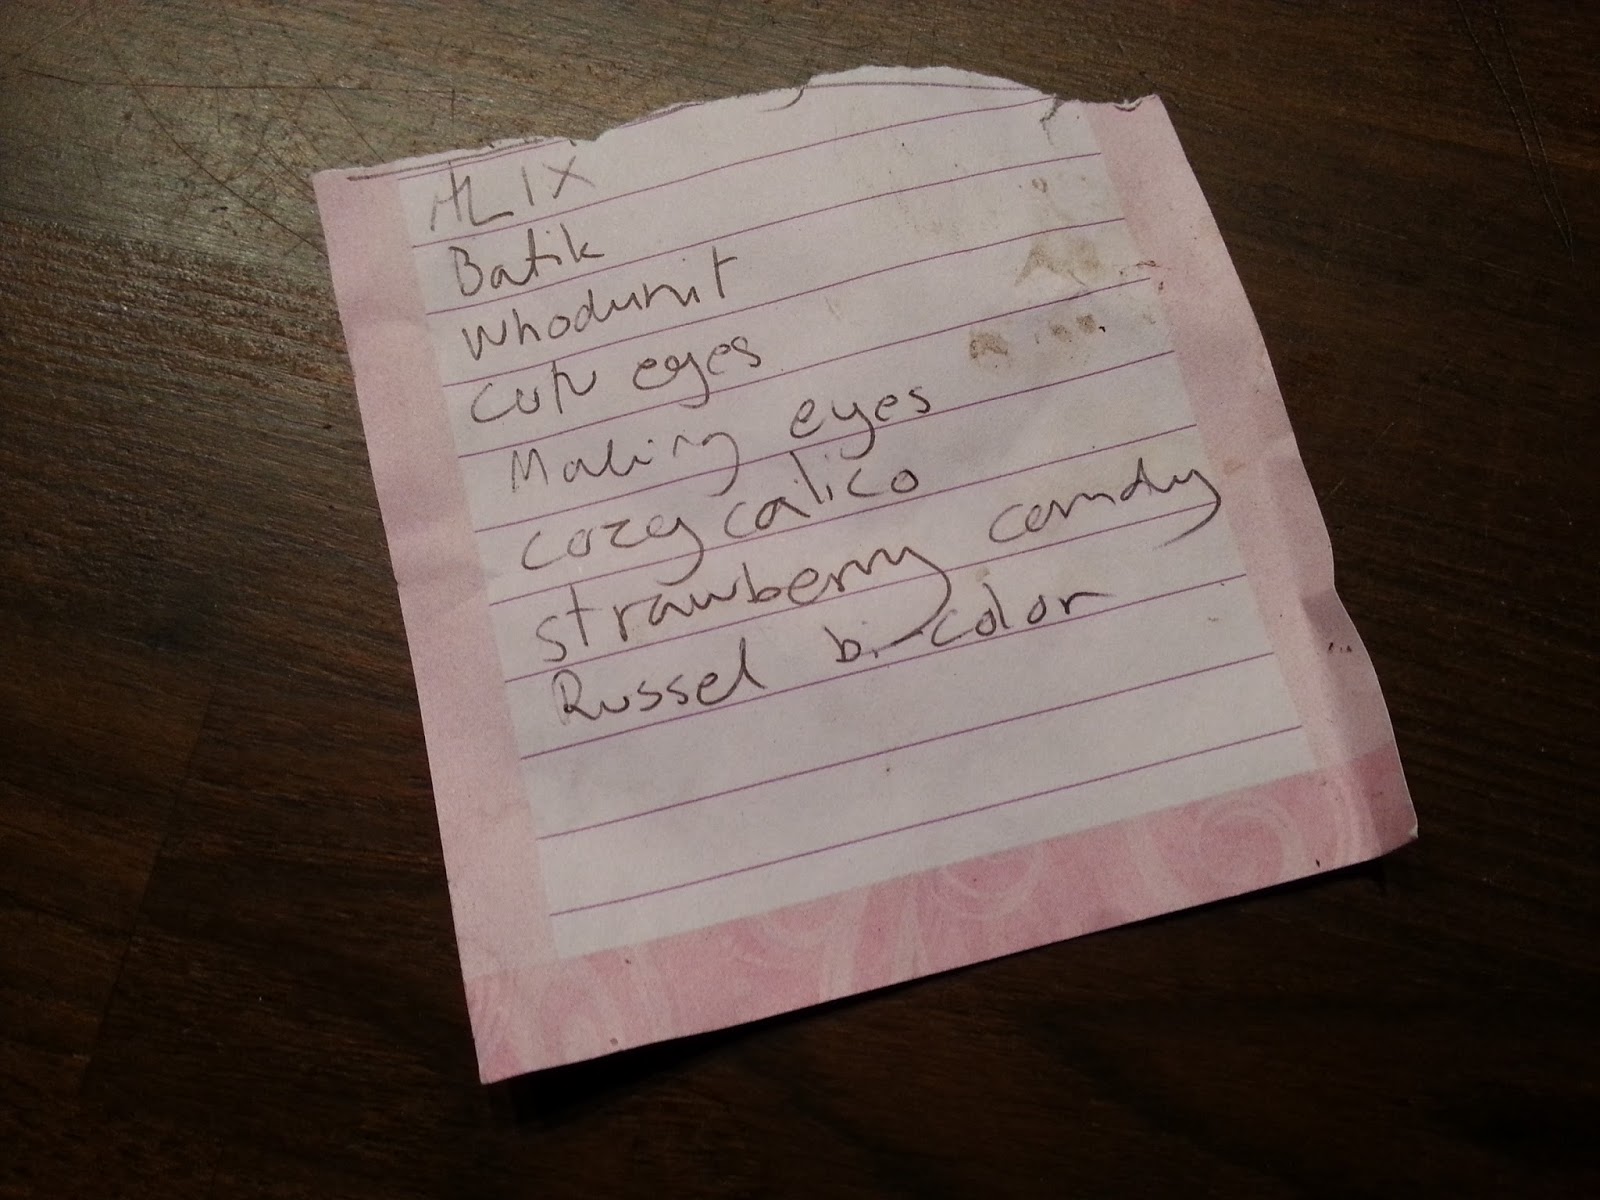 ALIX
Batik
Whodunit
cute eyes
Making eyes
cozy calico
strawberry candy
Russel bi-color